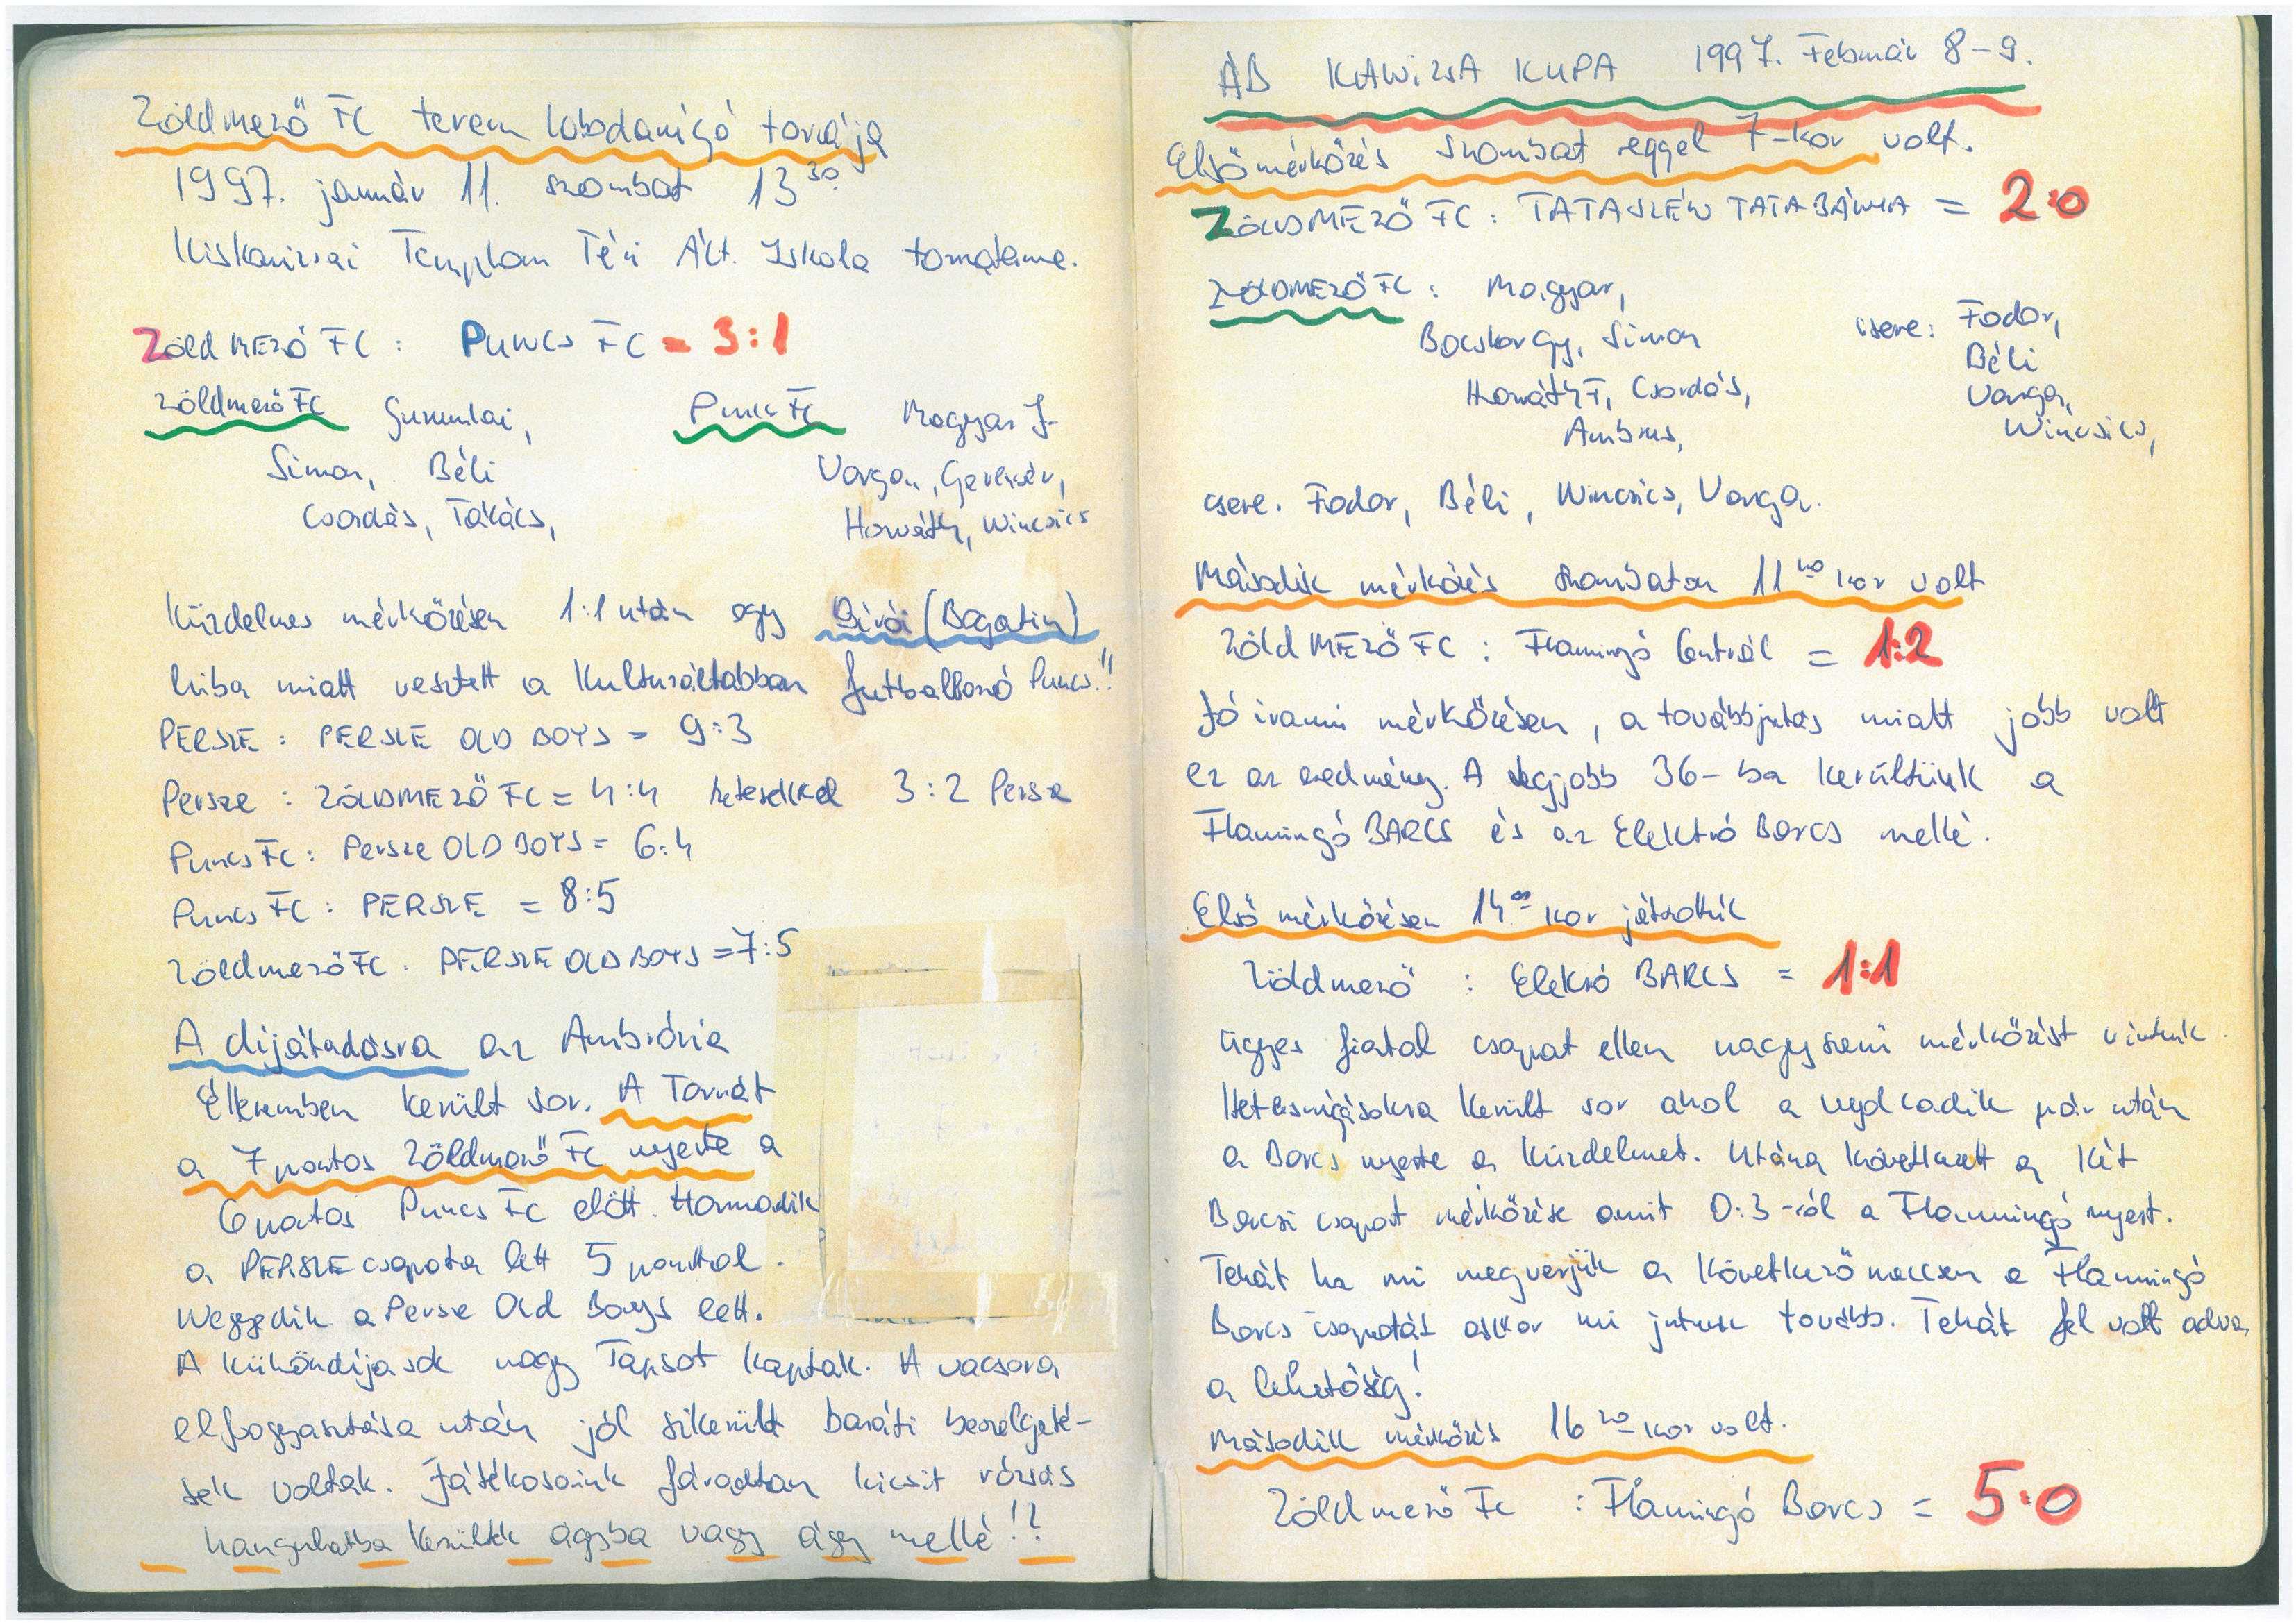 Zöldmező FC terem labdarúgó tornája
1997. január 11. szombat 13 30
Kiskanizsai Templom Téri Ált. Iskola tornaterme.
Zöld MEZŐ FC : PUNCS FC = 3:1
Zöldmező FC Gumilai, Puncs FC Magyar J.
Simon, Béli Varga, Gerencsér,
Csordás, Takács, Horváth, Wincsics
Küzdelmes mérkőzésen 1:1 után egy Bírói (Bogatin)
hiba miatt vesztett a Kulturáltabban futballozó Puncs!!
PERSZE : PERSZE OLD BOYS = 9:3
Persze : ZÖLDMEZŐ FC = 4:4 hetesekkel 3:2 Persze
Puncs FC : Persze OLD BOYS = 6:4
Puncs FC : PERSZE = 8:5
Zöldmező FC : PERSZE OLD BOYS = 7:5
A díjátadásra az Ambrózia
Étteremben került sor. A Tornát
a 7 pontos Zöldmező FC nyerte a
6 pontos Puncs FC előtt. Harmadik
a PERSZE csapata lett 5 ponttal.
Negyedik a Persze Old Boys lett.
A különdíjasok nagy Tapsot kaptak. A vacsora
elfogyasztása után jól sikerült baráti beszélgeté-
sek voltak. Játékosaink fáradtan kicsit rózsás
hangulatba kerültek ágyba vagy ágy mellé!?
ÁB KANIZSA KUPA 1997. Február 8-9.
Első mérkőzés szombat reggel 7-kor volt.
ZÖLDMEZŐ FC : TATASZÉN TATABÁNYA = 2:0
ZÖLDMEZŐ FC : Magyar,
Bocskor Gy, Simon csere: Fodor,
Horváth T, Csordás, Béli
Ambrus, Varga,
Wincsics,
csere. Fodor, Béli, Wincsics, Varga.
Második mérkőzés szombaton 11 kor volt
Zöld MEZŐ FC : Flamingó Centrál = 1:2
Jó iramú mérkőzésen, a továbbjutás miatt jobb volt
ez az eredmény. A legjobb 36-ba kerültünk a
Flamingó BARCS és az Elektró Barcs mellé.
Első mérkőzésen 14 00 kor játszottuk
Zöldmező : Elekró BARCS = 1:1
Ügyes fiatal csapat ellen nagyszerű mérkőzést vívtunk.
Hetesrúgásokra Került sor ahol a nyolcadik pár után
a Barcs nyerte a küzdelmet. Utána következett a Két
Barcsi csapat mérkőzése amit 0:3-ról a Flammingó nyert.
Tehát ha mi megverjük a következő meccsen a Flammingó
Barcs csapatát akkor mi jutunk tovább. Tehát fel volt adva
a lehetőség!
Második mérkőzés 16 kor volt.
Zöldmező Fc : Flamingó Barcs = 5:0